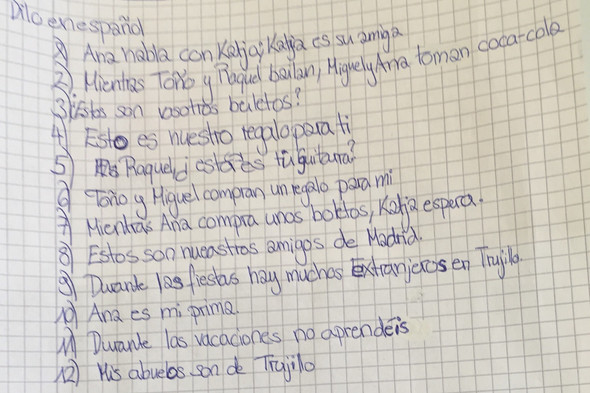 Dilo en español
1) Ana habla con Katja; Katja es su amiga
2) Mientras Toño y Raquel bailan, Miguel y Ana toman coca-cola
3) ¿Estos son vosotros boletos?
4) Esto es nuestro regalo para ti
5) Raquel ¿ esta es tu guitarra?
6) Toño y Miguel compran un regalo para mi
7) Mientras Ana compra unos boletos, Katja espera.
8) Estos son nueastros amigos de Madrid.
9) Durante las fiestas hay muchos Extranjeros en Trujillo.
10) Ana es mi prima.
11) Durante las vacaciones no aprendéis
12) Mis abuelos son de Trujillo